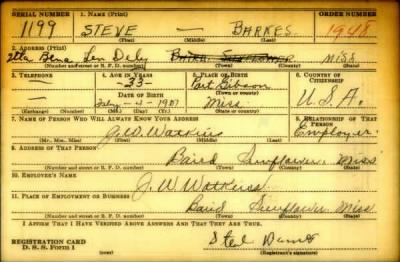 SERIAL NUMBER 1. NAME (Print) ORDER NUMBER
1199 STEVE — BARKES 1948
(First) (Middle) (Last)
2. ADDRESS (Print)
Itta Bena Miss
(Number and street or R. F. D. number) (Town) (County) (State)
3. TELEPHONE 4. AGE IN YEARS 5. PLACE OF BIRTH 6. COUNTRY OF CITIZENSHIP
— 33 Port Gibson
DATE OF BIRTH (Town or county)
— 4 - 1907 Miss. U.S.A.
(Exchange) (Number) (Mo.) (Day) (Yr.) (State or country)
7. NAME OF PERSON WHO WILL ALWAYS KNOW YOUR ADDRESS 8. RELATIONSHIP OF THAT PERSON
J.W. Watkins Employer
(Mr., Mrs., Miss) (First) (Middle) (Last)
9. ADDRESS OF THAT PERSON
Baird Sunflower Miss
(Number and street or R. F. D. number) (Town) (County) (State)
10. EMPLOYER'S NAME
J. W. Watkins
11. PLACE OF EMPLOYMENT OR BUSINESS
Baird Sunflower Miss
(Number and street or R. F. D. number) (Town) (County) (State)
I AFFIRM THAT I HAVE VERIFIED ABOVE ANSWERS AND THAT THEY ARE TRUE.
REGISTRATION CARD
D. S. S. Form 1 (Registrant's signature)